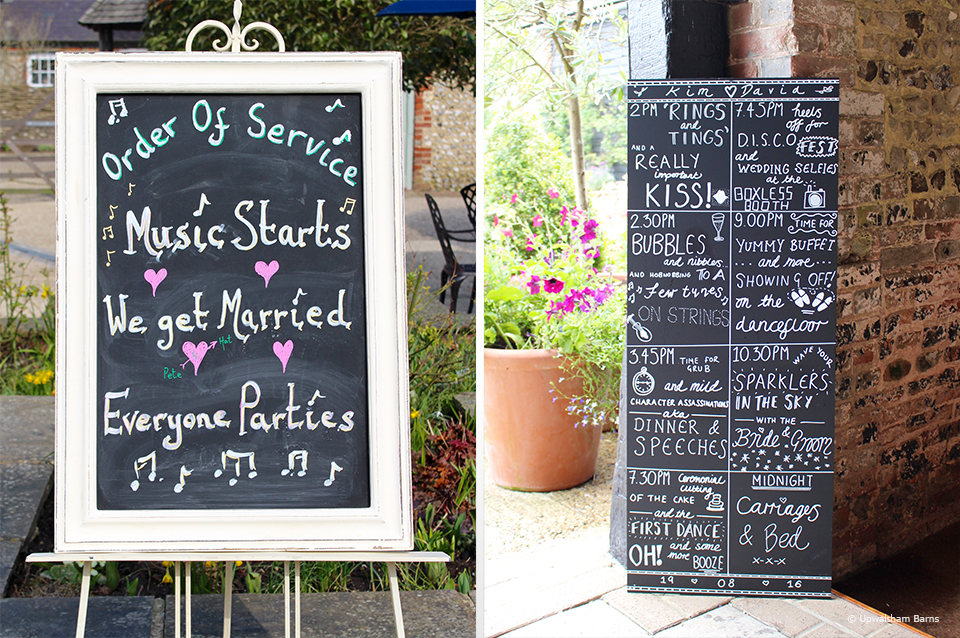 Order Of Service
Music Starts
We get Married
Hat
Pete
Everyone Parties
Kim David
2PM 'RINGS
and
TINGS'
AND A
REALLY
important
KISS!
2.30PM
BUBBLES
and nibbles
AND HOBNOBBING TO A
Few tunes
ON STRINGS
3.45PM TIME FOR
GRUB
and mild
CHARACTER ASSASSINATIONS
aka
DINNER &
SPEECHES
7.30PM Ceremonial
cutting
OF THE CAKE
and the
FIRST DANCE
OH! and some
more BOOZE
7.45PM heels
off for
D.I.S.C.O
FEST
and
WEDDING SELFIES
at the...
BOXLESS
BOOTH
9.00PM TIME FOR
YUMMY BUFFET
...and more...
SHOWING OFF!
on the
dancefloor
10.30PM WAVE YOUR
SPARKLERS
IN THE SKY
WITH THE
Bride & Groom
MIDNIGHT
Carriages
& Bed
x-x-x
19 08 16
© Upwaltham Barns